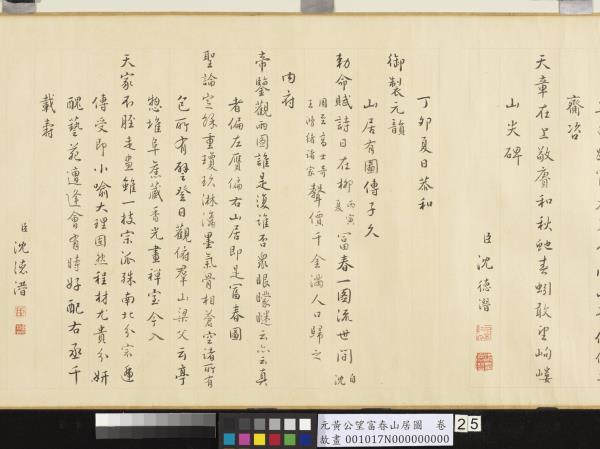 齊冶
天章在上敬賡和秋虵春蚓敢望岣嶁
山尖碑
臣沈德潛
丁卯夏日恭和
御製元韻
山居有圖傳子久
勅命賦詩日在柳丙寅夏富春一圖流世間自沈
周至高士奇王鴻緒諸家聲價千金滿人口歸之
內府
帝鑒觀兩圖誰是復誰否衆眼矇瞇云亦云真
者偏左贋偏右山居即是富春圖
聖論定餘重瓊玖淋漓墨氣骨相蒼空諸所有
包所有譬登日觀俯羣山梁父云亭
惣堆阜舊藏香光畫禪室今入
天家不脛走畫雖一技宗派殊南北分宗遞
傳受即小喻大理固然程材尤貴分妍
醜藝苑遭逢會有時好配右丞千
載壽
臣沈德潛
元黃公望富春山居圖 卷 25
故畫 001017N000000000